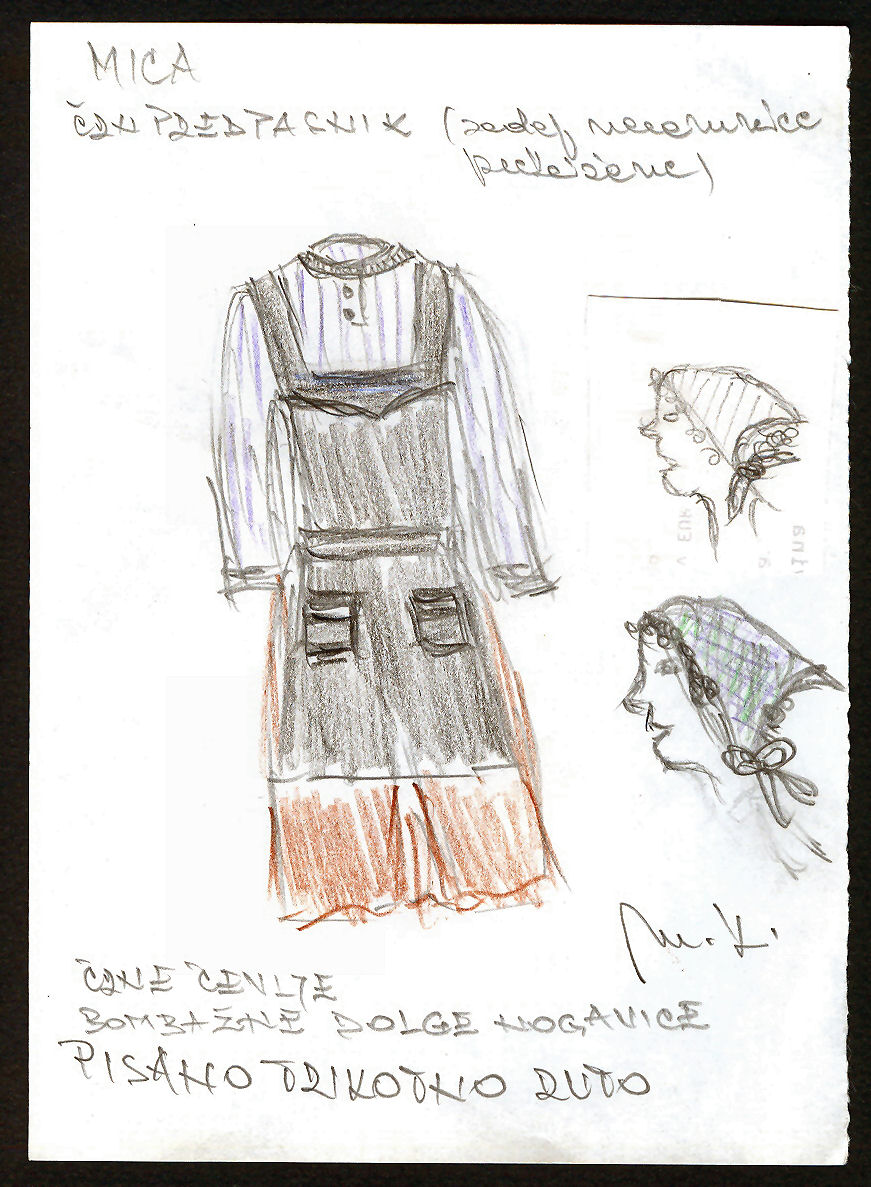 MICA
ČRN PREDPASNIK (zadaj naramnice
prekrižane)
M. K.
ČRNE ČEVLJE
BOMBAŽNE DOLGE NOGAVICE
PISANO TRIKOTNO RUTO